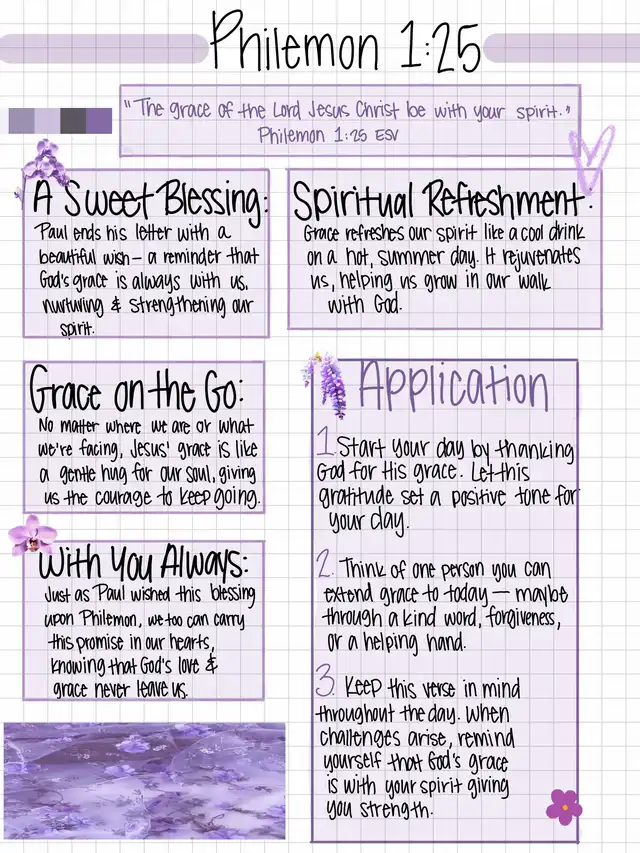 Philemon 1:25
"The grace of the Lord Jesus Christ be with your spirit."
Philemon 1:25 ESV
A Sweet Blessing:
Paul ends his letter with a
beautiful wish— a reminder that
God's grace is always with us,
nurturing & strengthening our
spirit.
Spiritual Refreshment:
Grace refreshes our spirit like a cool drink
on a hot, summer day. It rejuvenates
us, helping us grow in our walk
with God.
Grace on the Go:
No matter where we are or what
we're facing, Jesus' grace is like
a gentle hug for our soul, giving
us the courage to keep going.
With You Always:
Just as Paul wished this blessing
upon Philemon, we too can carry
this promise in our hearts,
knowing that God's love &
grace never leave us.
Application
1. Start your day by thanking
God for His grace. Let this
gratitude set a positive tone for
your day.
2. Think of one person you can
extend grace to today — maybe
through a kind word, forgiveness,
or a helping hand.
3. Keep this verse in mind
throughout the day. When
challenges arise, remind
yourself that God's grace
is with your spirit giving
you strength.